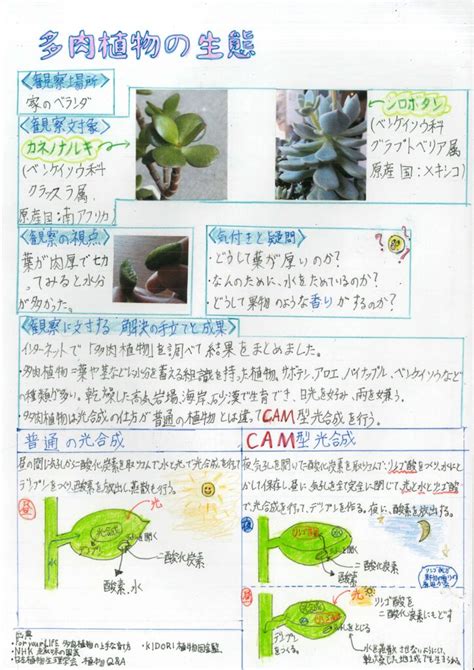 多肉植物の生態
〈観察場所〉
家のベランダ
〈観察対象〉
カネノナルキ
(ベンケイソウ科
クラッスラ属
原産国:南アフリカ)
シロボタン
(ベンケイソウ科
グラプトベリア属
原産国:メキシコ)
〈観察の視点〉
葉が肉厚で切
ってみると水分
が多かった。
〈気付きと疑問〉
・どうして葉が厚いのか?
・なんのために、水をためているのか?
・どうして果物のような香りがするのか?
〈観察に対する 解決の手立てと成果〉
インターネットで「多肉植物」を調べて結果をまとめました。
・多肉植物=葉や茎などに水分を蓄える組織を持った植物。サボテン、アロエ、パイナップル、ベンケイソウなど
の種類が多い。乾燥した高山、岩場、海岸、砂漠で生育でき、日光を好み、雨を嫌う。
・多肉植物は光合成の仕方が普通の植物とは違ってCAM型光合成を行う。
普通の光合成
昼の間に気孔から二酸化炭素を取りこんで水と光で光合成を行って
デンプンをつくって酸素を放出し、蒸散も行う。
昼
光
光合成
デンプン
気孔を開く
二酸化炭素
酸素、水
CAM型光合成
夜、気孔を開いて二酸化炭素を取りこんでリンゴ酸をつくり、水にと
かして保存し、昼に気孔を全て完全に閉じて、光と水とリンゴ酸
で、光合成を行って、デンプンを作る。夜に、酸素を放出する。
夜
リンゴ酸
気孔を開く
二酸化炭素
酸素
昼
光
リンゴ酸を
二酸化炭素にもどす
デンプンを
つくる
水を蒸散させないように、
出典
・For your LIFE 多肉植物の上手な育て方
・KIDORI 植物図鑑
・NHK
・日本植物生理学会 植物Q&A